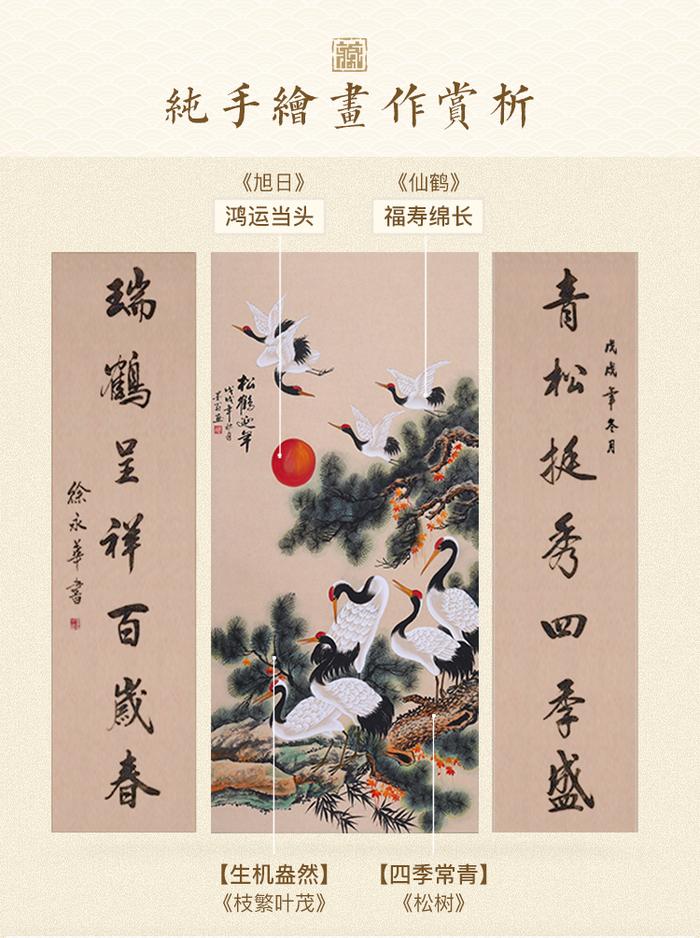 純手繪畫作賞析
《旭日》
鸿运当头
《仙鹤》
福寿绵长
青松挺秀四季盛
戊戌年冬月
松鶴延年
瑞鶴呈祥百歲春
徐永華書
【生机盎然】
《枝繁叶茂》
【四季常青】
《松树》